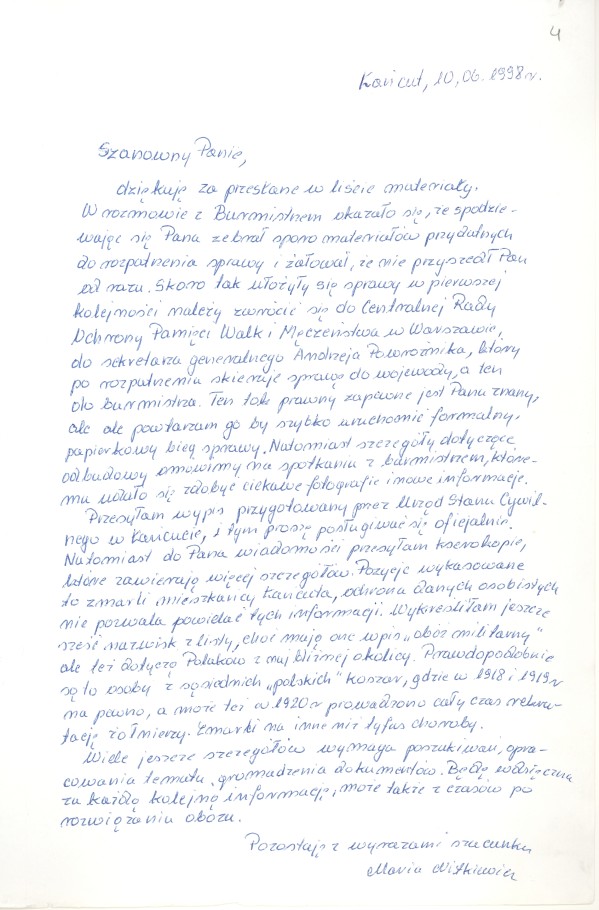 4
Łańcut, 10.06.1998r.
Szanowny Panie,
dziękuję za przesłane w liście materiały.
W rozmowie z Burmistrzem okazało się, że spodzie-
wając się Pana zebrał sporo materiałów przydatnych
do rozpatrzenia sprawy i żałował, że nie przyszedł Pan
od razu. Skoro tak ułożyły się sprawy w pierwszej
kolejności należy zwrócić się do Centralnej Rady
Ochrony Pamięci Walk i Męczeństwa w Warszawie,
do sekretarza generalnego Andrzeja Przewoźnika, który
po rozpatrzeniu skieruje sprawę do wojewody, a ten
do burmistrza. Ten tok prawny zapewne jest Panu znany,
ale ale powtarzam go by szybko uruchomić formalny,
papierkowy bieg sprawy. Natomiast szczegóły dotyczące
odbudowy omówimy na spotkaniu z burmistrzem, które-
mu udało się zdobyć ciekawe fotografie i nowe informacje.
Przesyłam wypis przygotowany przez Urząd Stanu Cywil-
nego w Łańcucie, i tym proszę posługiwać się oficjalnie.
Natomiast do Pana wiadomości przesyłam kserokopie,
które zawierają więcej szczegółów. Pozycje wykasowane
to zmarli mieszkańcy Łańcuta, ochrona danych osobistych
nie pozwala powielać tych informacji. Wykreśliłam jeszcze
sześć nazwisk z listy, choć mają one wpis "obóz militarny"
ale też dotyczą Polaków z najbliższej okolicy. Prawdopodobnie
są to osoby z sąsiednich "polskich" koszar, gdzie w 1918 i 1919r
na pewno, a może też i w 1920r prowadzono cały czas rekru-
tację żołnierzy. Zmarli na inne niż tyfus choroby.
Wiele jeszcze szczegółów wymaga poszukiwań, opra-
cowania tematu, gromadzenia dokumentów. Będę wdzięczna
za każdą kolejną informację, może także z czasów po
rozwiązaniu obozu.
Pozostaję z wyrazami szacunku
Maria Nitkiewicz